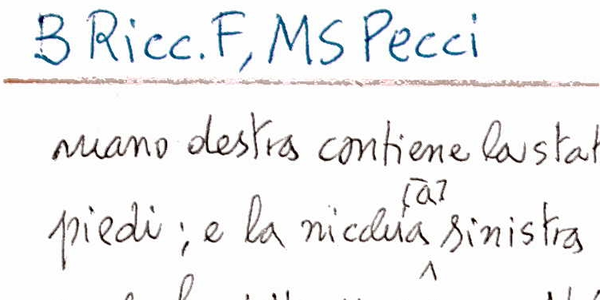 B Ricc. F, MS Pecci
mano destra contiene la stat
piedi; e la nicchia [a] sinistra